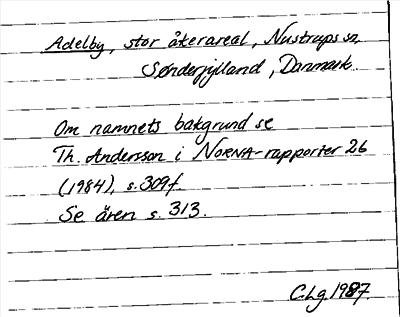 Adelby, stor åkerareal, Nustrups sn,
Sønderjylland, Danmark.
Om namnets bakgrund se
Th. Andersson i NORNA-rapporter 26
(1984), s. 309f.
Se även s. 313.
C.Lg. 1987.